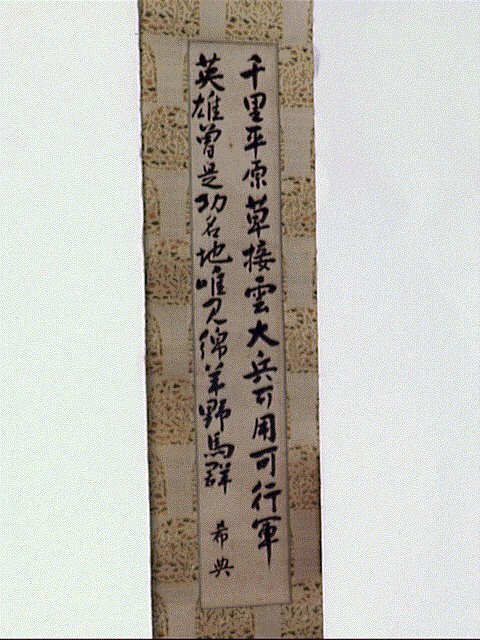 千里平原草接雲大兵可用可行軍
英雄曾是功名地唯見綿羊野馬群
希典